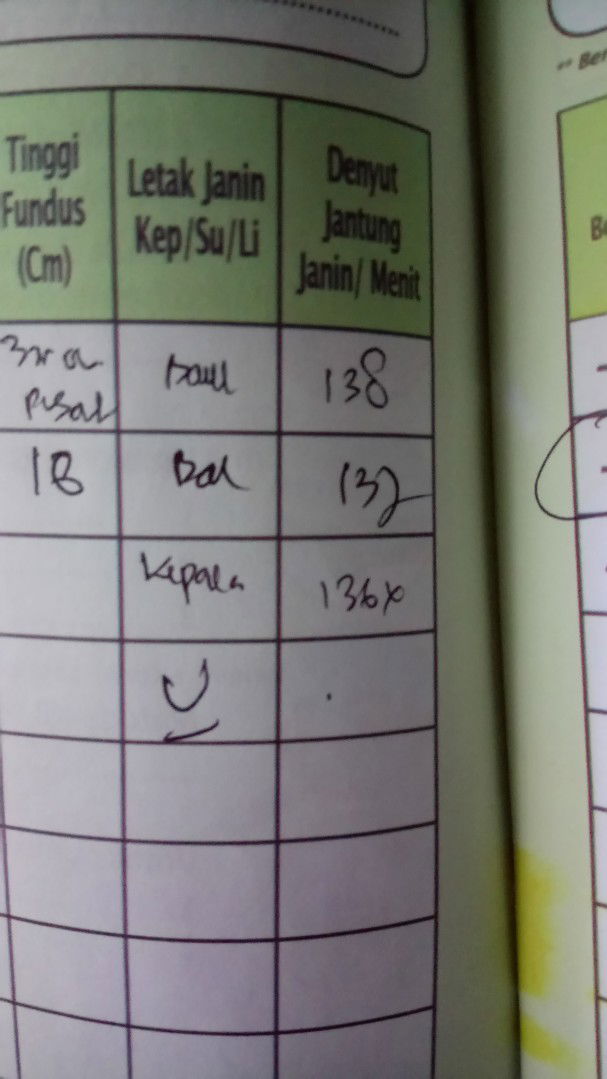 Tinggi
Fundus
(Cm)
Letak Janin
Kep/Su/Li
Denyut
Jantung
Janin/ Menit
** Ber
Be
pusat
138
18
Bal
132
Kepala
136x
U